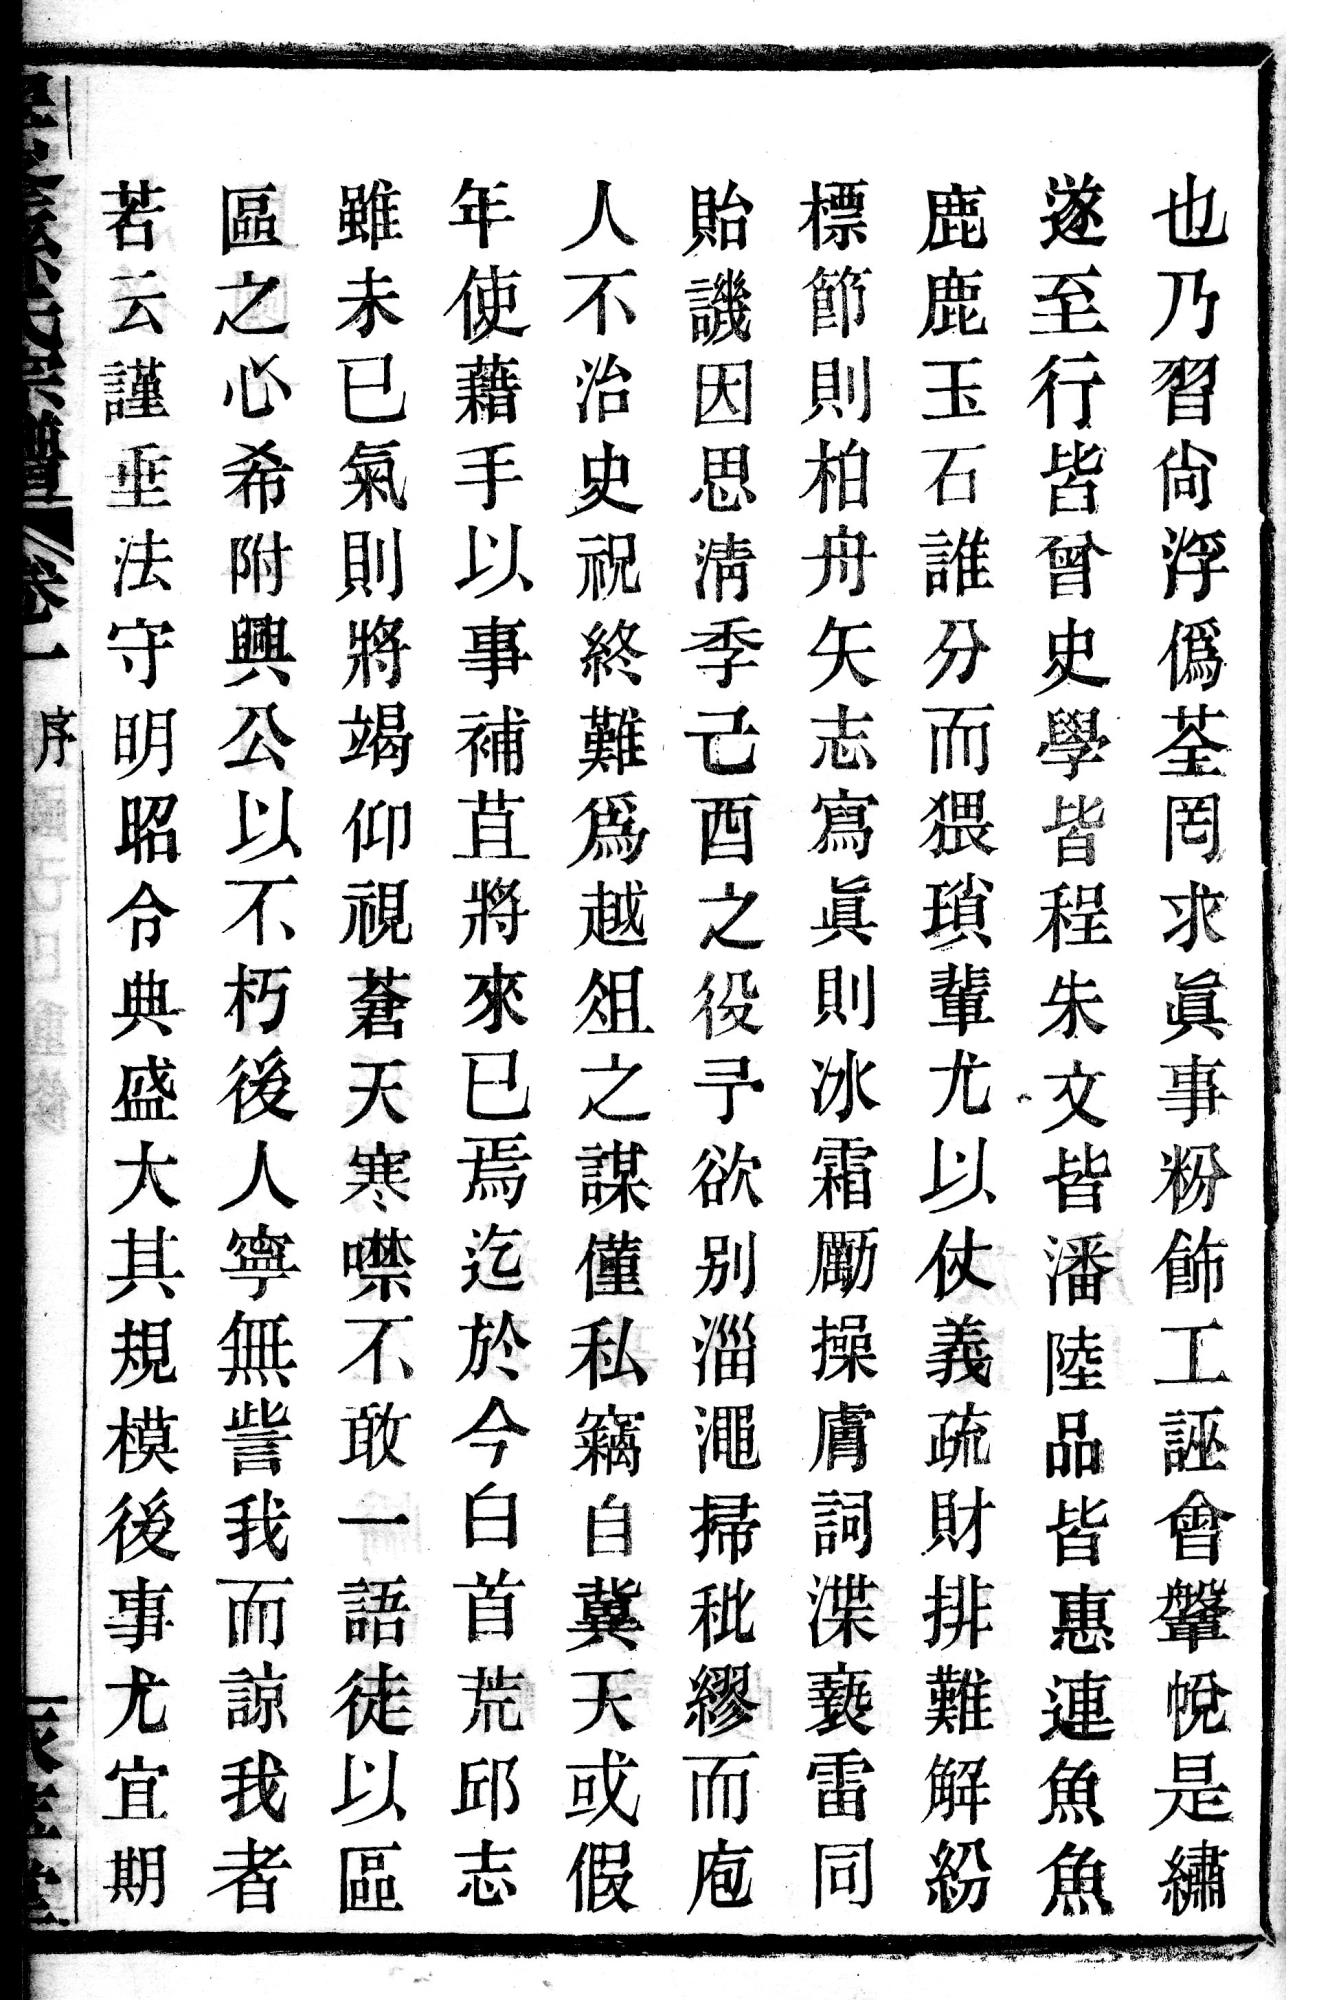 也乃習尙浮僞荃罔求眞事粉飾工誣會鞶帨是繡
遂至行皆曾史學皆程朱文皆潘陸品皆惠連魚魚
鹿鹿玉石誰分而猥瑣輩尤以仗義疏財排難解紛
標節則柏舟矢志寫眞則冰霜勵操膚詞渫褻雷同
貽譏因思淸季己酉之役予欲別淄澠掃秕繆而庖
人不治史祝終難爲越俎之謀僅私竊自冀天或假
年使藉手以事補苴將來已焉迄於今白首荒邱志
雖未已氣則將竭仰視蒼天寒噤不敢一語徒以區
區之心希附興公以不朽後人寧無訾我而諒我者
若云謹垂法守明昭令典盛大其規模後事尤宜期
氏宗譜
卷一
序